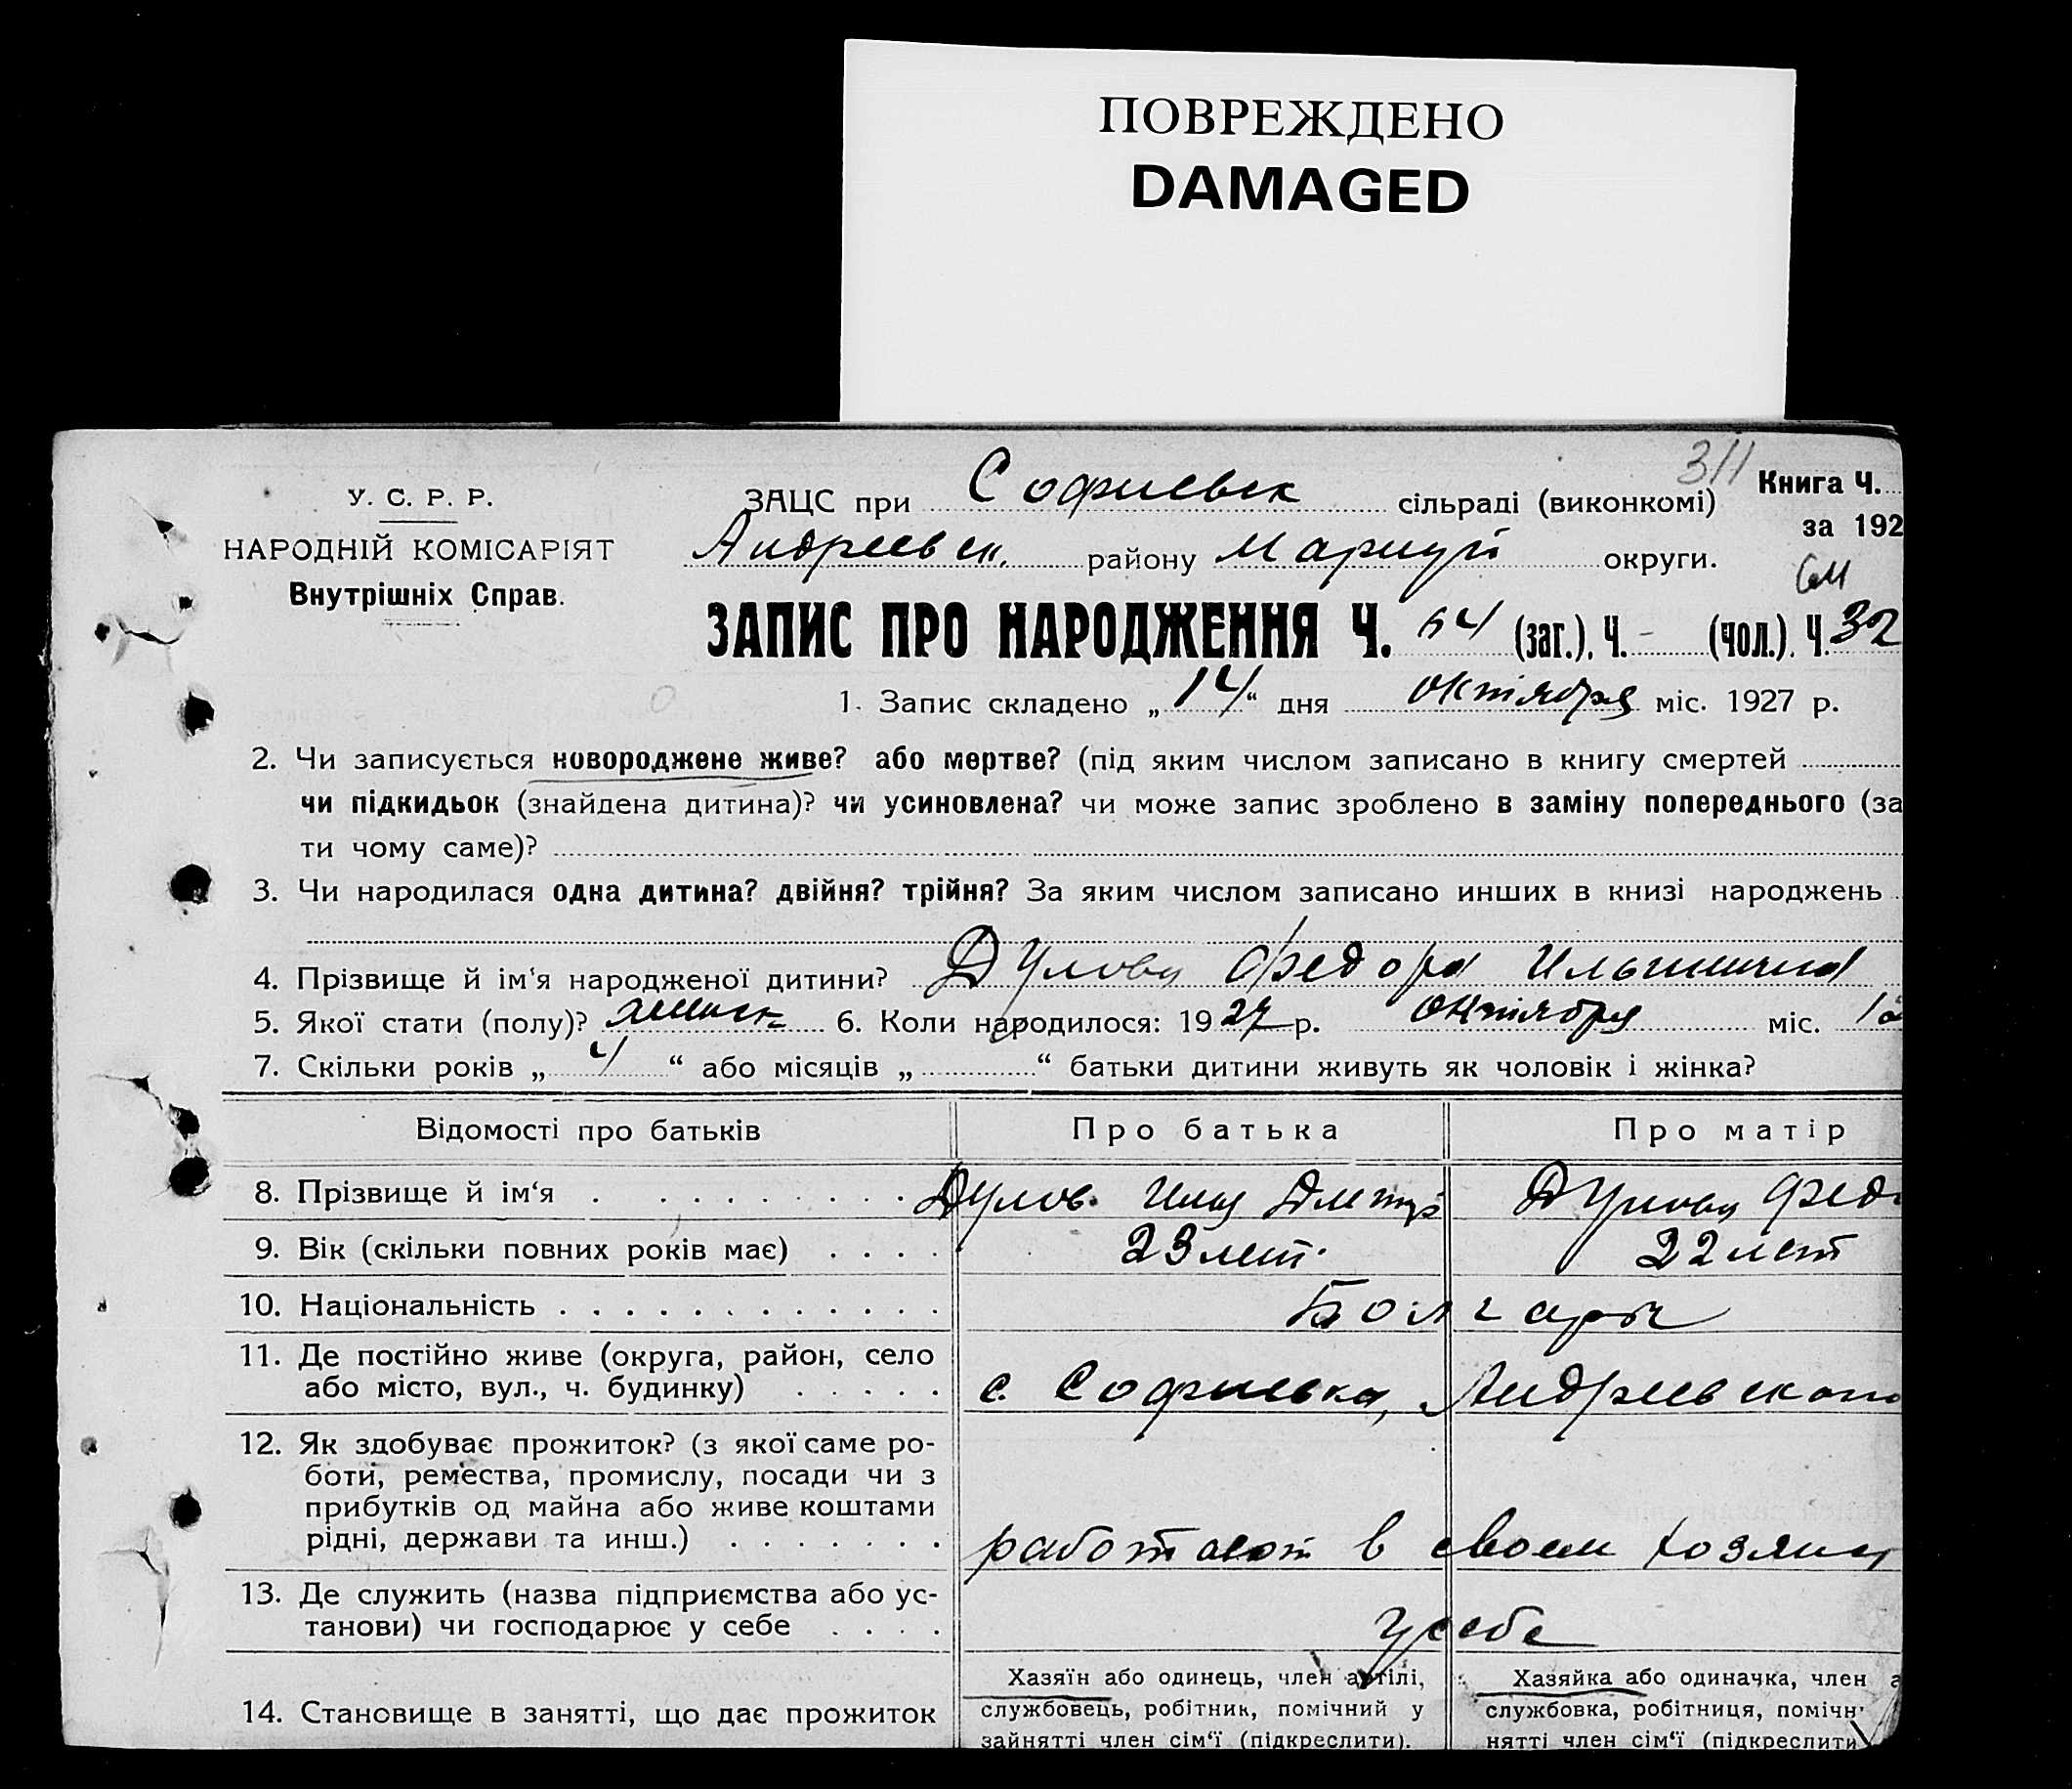 ПОВРЕЖДЕНО
DAMAGED
311
У. С. Р. Р.
НАРОДНІЙ КОМІСАРІЯТ
Внутрішніх Справ.
ЗАЦС при Софиевск сільраді (виконкомі)
Книга Ч.
за 192
Андреевск. району Мариуп округи.
ЗАПИС ПРО НАРОДЖЕННЯ Ч. 64 (заг.). Ч. - (чол.). Ч. 32
1. Запис складено „14“ дня октября міс. 1927 р.
2. Чи записується новороджене живе? або мертве? (під яким числом записано в книгу смертей
чи підкидьок (знайдена дитина)? чи усиновлена? чи може запис зроблено в заміну попереднього (за
ти чому саме)?
3. Чи народилася одна дитина? двійня? трійня? За яким числом записано инших в книзі народжень
4. Прізвище й ім‘я народженої дитини? Дулова Федора Ильинична
5. Якої стати (полу)? женск 6. Коли народилося: 1927 р. октября міс. 12
7. Скільки років „ 4 “ або місяців „ “ батьки дитини живуть як чоловік і жінка?
Відомості про батьків Про батька Про матір
8. Прізвище й ім‘я . Дулов Илья Дмитр Дулова Фед
9. Вік (скільки повних років має) 23 лет. 22 лет
10. Національність Болгары
11. Де постійно живе (округа, район, село
або місто, вул., ч. будинку) с. Софиевка, Андреевского
12. Як здобуває прожиток? (з якої саме ро-
боти, ремества, промислу, посади чи з
прибутків од майна або живе коштами
рідні, держави та инш.) работают в своем хозяйст
13. Де служить (назва підприємства або ус-
танови) чи господарює у себе у себе
14. Становище в занятті, що дає прожиток
Хазяїн або одинець, член артілі,
службовець, робітник, помічний у
зайнятті член сім‘ї (підкреслити).
Хазяйка або одиначка, член а
службовка, робітниця, помічн
нятті член сім‘ї (підкреслити